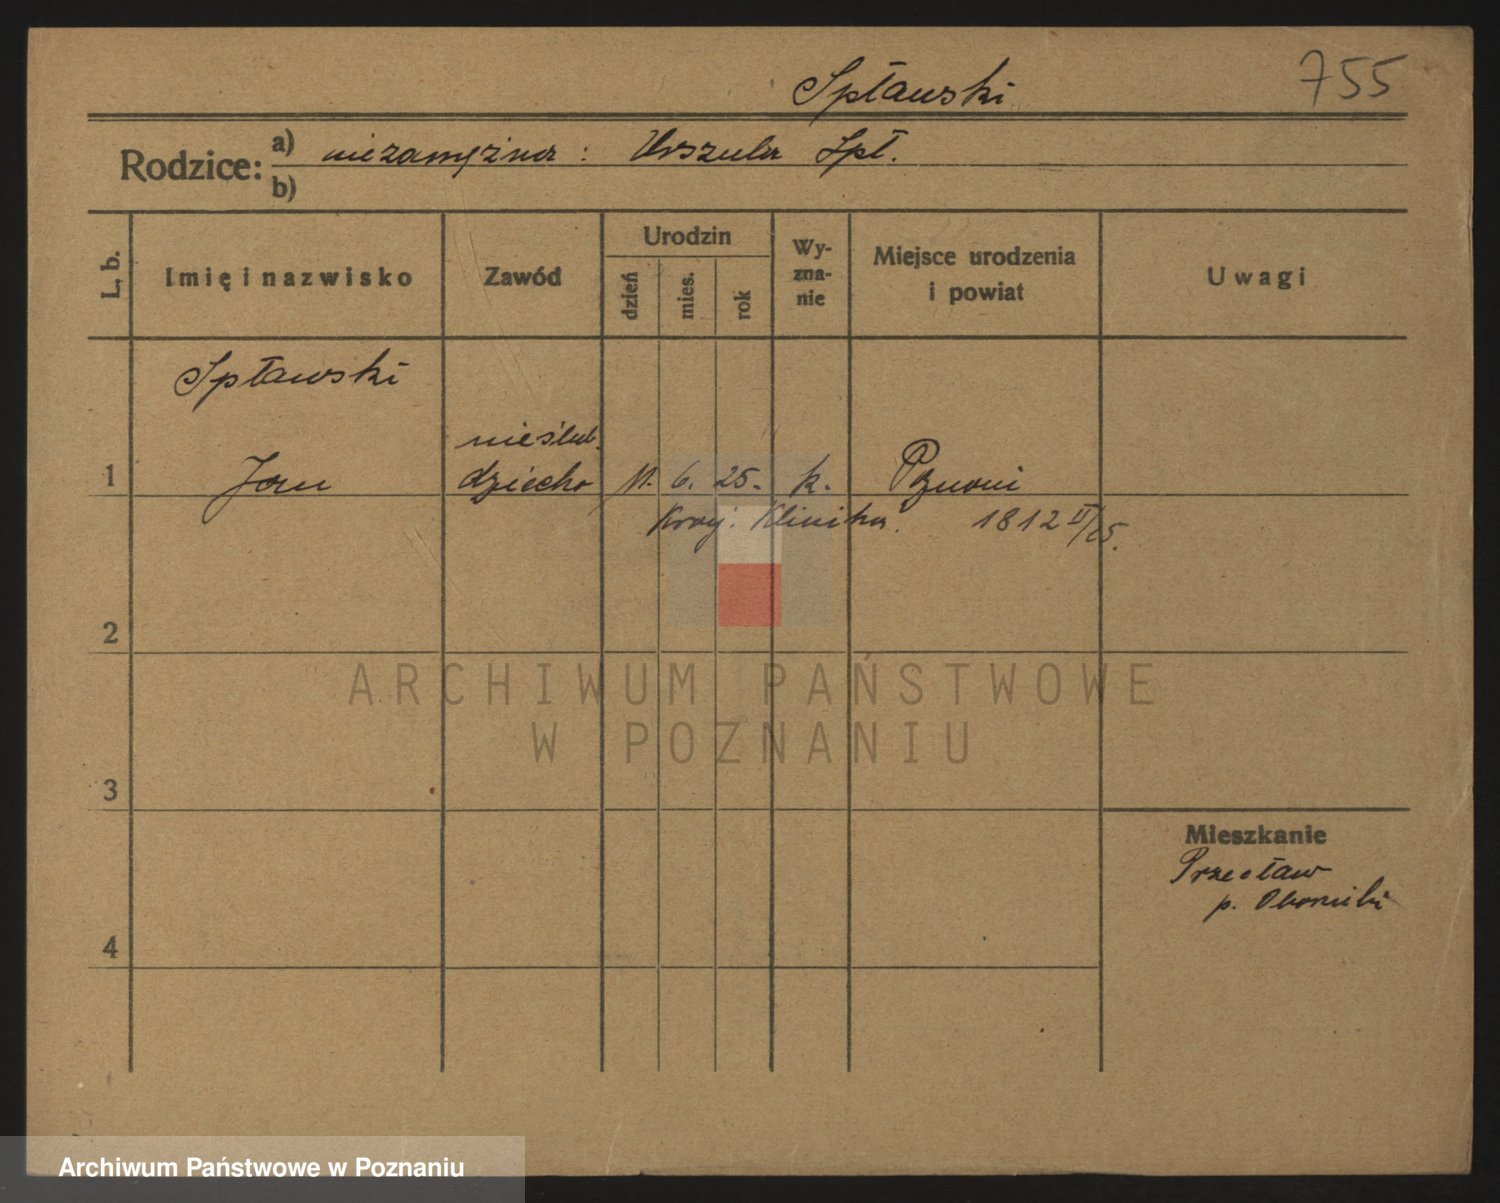 Spławski
755
Rodzice:
a) niezamężna : Urszula Spł.
b)
L, b.
Imię i nazwisko
Zawód
Urodzin
dzień
mies.
rok
Wy-
zna-
nie
Miejsce urodzenia
i powiat
Uwagi
Spławski
nieślub.
1 Jan dziecko 11. 6. 25. k.
Kraj. Klinika. 1812 II/25.
2
ARCHIWUM PAŃSTWOWE
W POZNANIU
3
Mieszkanie
Przecław
p. Oborniki
4
Archiwum Państwowe w Poznaniu